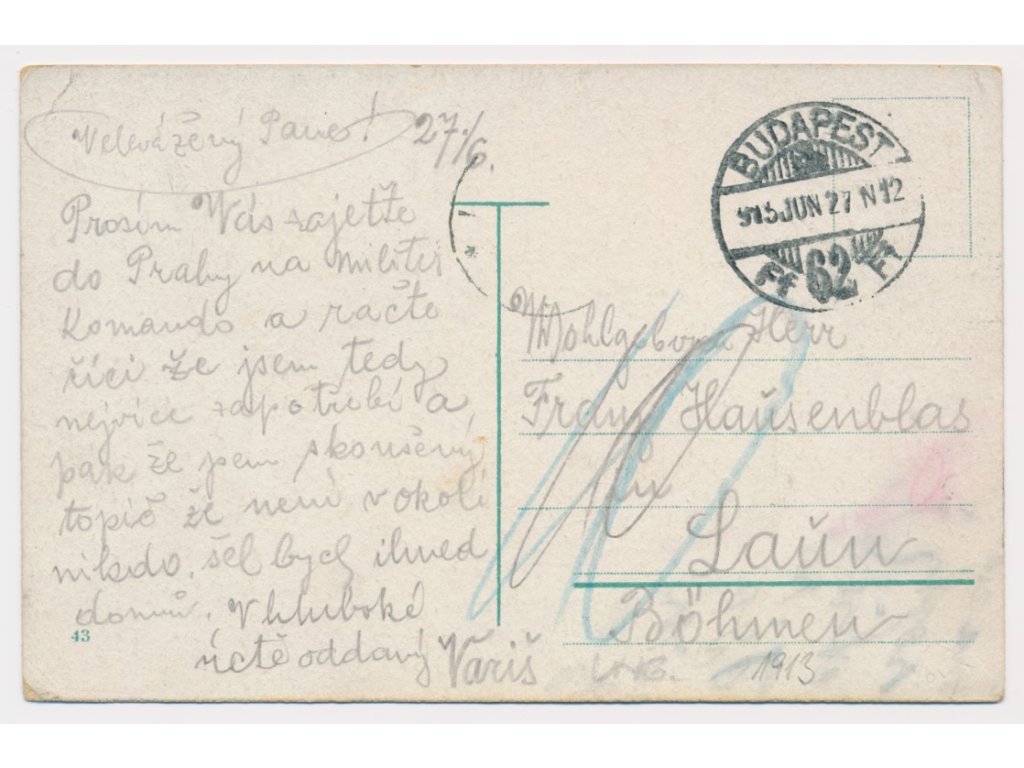 Velevážený Pane! 27./6.
Prosím Vás zajeďte
do Prahy na militer
Komando a račte
říci že jsem tedy
nejvíce zapotřebí a
pak že jsem skoušený
topič že není v okolí
nikdo, šel bych ihned
domů. V hluboké
úctě oddavý Variš
43
BUDAPEST
913 JUN 27 N12
62
Wohlgeborn Herr
Franz Hausenblas
in
Laun
Böhmen
1913